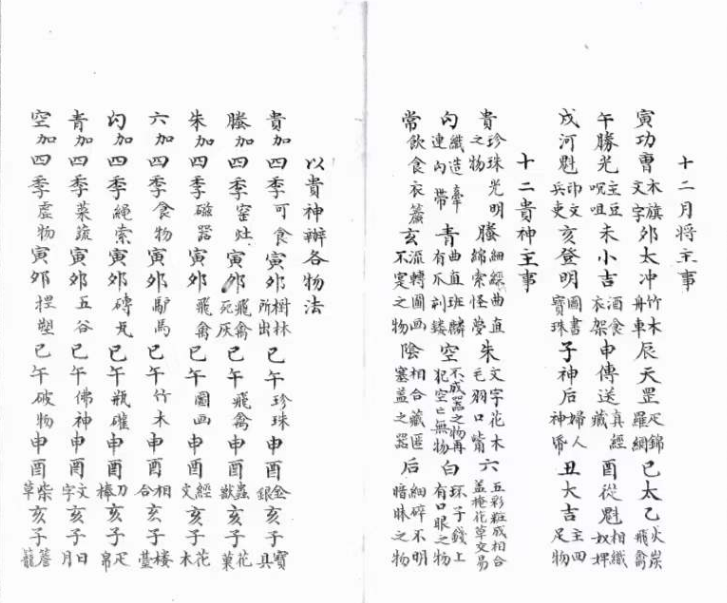 十二月將主事
寅功曹木旗文字卯太冲竹木舟車辰天罡疋錦羅綱巳太乙火炭飛禽
午勝光主豆呪咀未小吉酒食衣架申傳送真經藏酉從魁相織奴婢
戌河魁印文兵吏亥登明圖書寶珠子神后婦人神丑大吉主四足物
十二貴神主事
貴珍珠光明之物螣細經曲直綿索怪夢朱文字花木毛羽口嘴六五彩粧成相合蓋掩花草交易
勾織造牽連勾帶青曲直班麟有爪剖鏤空不成器之物再犯空亡無物白环子錢上有口眼之物
常飲食衣玄流轉圖画不寔之物陰相合藏匿塞蓋之器后細碎不明暗昧之物
以貴神辦各物法
貴加四季可食寅卯樹林所出巳午珍珠申酉金銀亥子寶具
螣加四季窑灶寅卯飛禽死灰巳午飛禽申酉蟲獸亥子花菓
朱加四季磁器寅卯飛禽巳午圖画申酉經文亥子花木
六加四季食物寅卯驢馬巳午竹木申酉相合亥子楼臺
勾加四季繩索寅卯磚瓦巳午瓶礶申酉刀棒亥子疋帛
青加四季菜蔬寅卯五谷巳午佛神申酉文字亥子日月
空加四季虛物寅卯捏塑巳午破物申酉柴草亥子籠